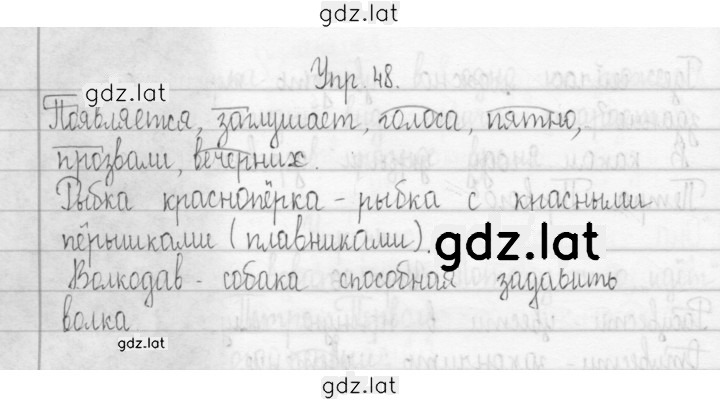 gdz.lat
Упр. 48.
gdz.lat
Появляется, заглушает, голоса, пятно,
прозвали, вечерних.
Рыбка краснопёрка - рыбка с красными
пёрышками (плавниками).
gdz.lat
Волкодав - собака способная задавить
волка
gdz.lat
gdz.lat